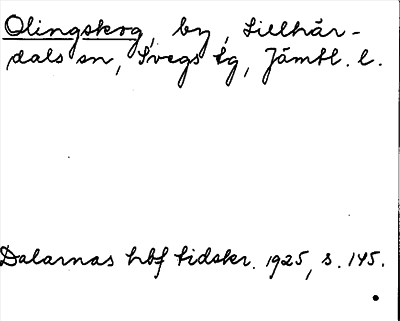 Olingskog, by, Lillhär-
dals sn, Svegs tg, Jämtl. l.
Dalarnas hbf tidskr. 1925, s. 145.